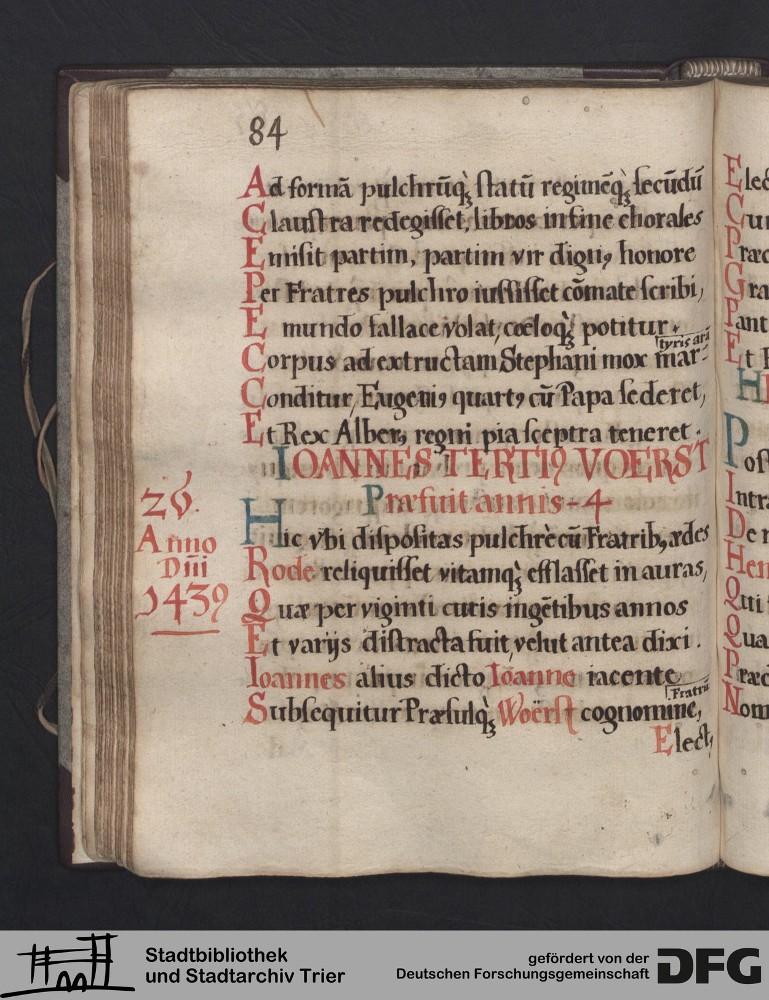 84
Ad formā pulchrūq̨ statū regimēq̨ secūdū
Claustra redegisset, libros in fine chorales
Emisit partim, partim vir digniꝰ honore
Per Fratres pulchro iussisset cōmate scribi,
E mundo fallace volat, cœloq̨ potitur.
tyris arā
Corpus ad extructam Stephani mox mar-
Conditur, Eugeniꝰ quartꝰ cū Papa sederet,
Et Rex Alberꝰ regni pia sceptra teneret.
IOANNES TERTIꝰ VOERST
Præfuit annis - 4
Anno
Dñi
1439
Hic vbi dispositas pulchrè cū Fratribꝰ ædes
Rode reliquisset vitamq̨ efflasset in auras,
Quæ per viginti cutis ingētibus annos
Et varijs distracta fuit, velut antea dixi.
Ioannes alius dicto Ioanne iacente
Fratrū
Subsequitur Præsulq̨ Woërst cognomine,
Electꝰ
Elec
Cu
Præ
Gra
Pant
Et
H
Pos
Intra
De
Hen
Qui
Qua
Præ
Nom
Stadtbibliothek
und Stadtarchiv Trier
gefördert von der
Deutschen Forschungsgemeinschaft
DFG